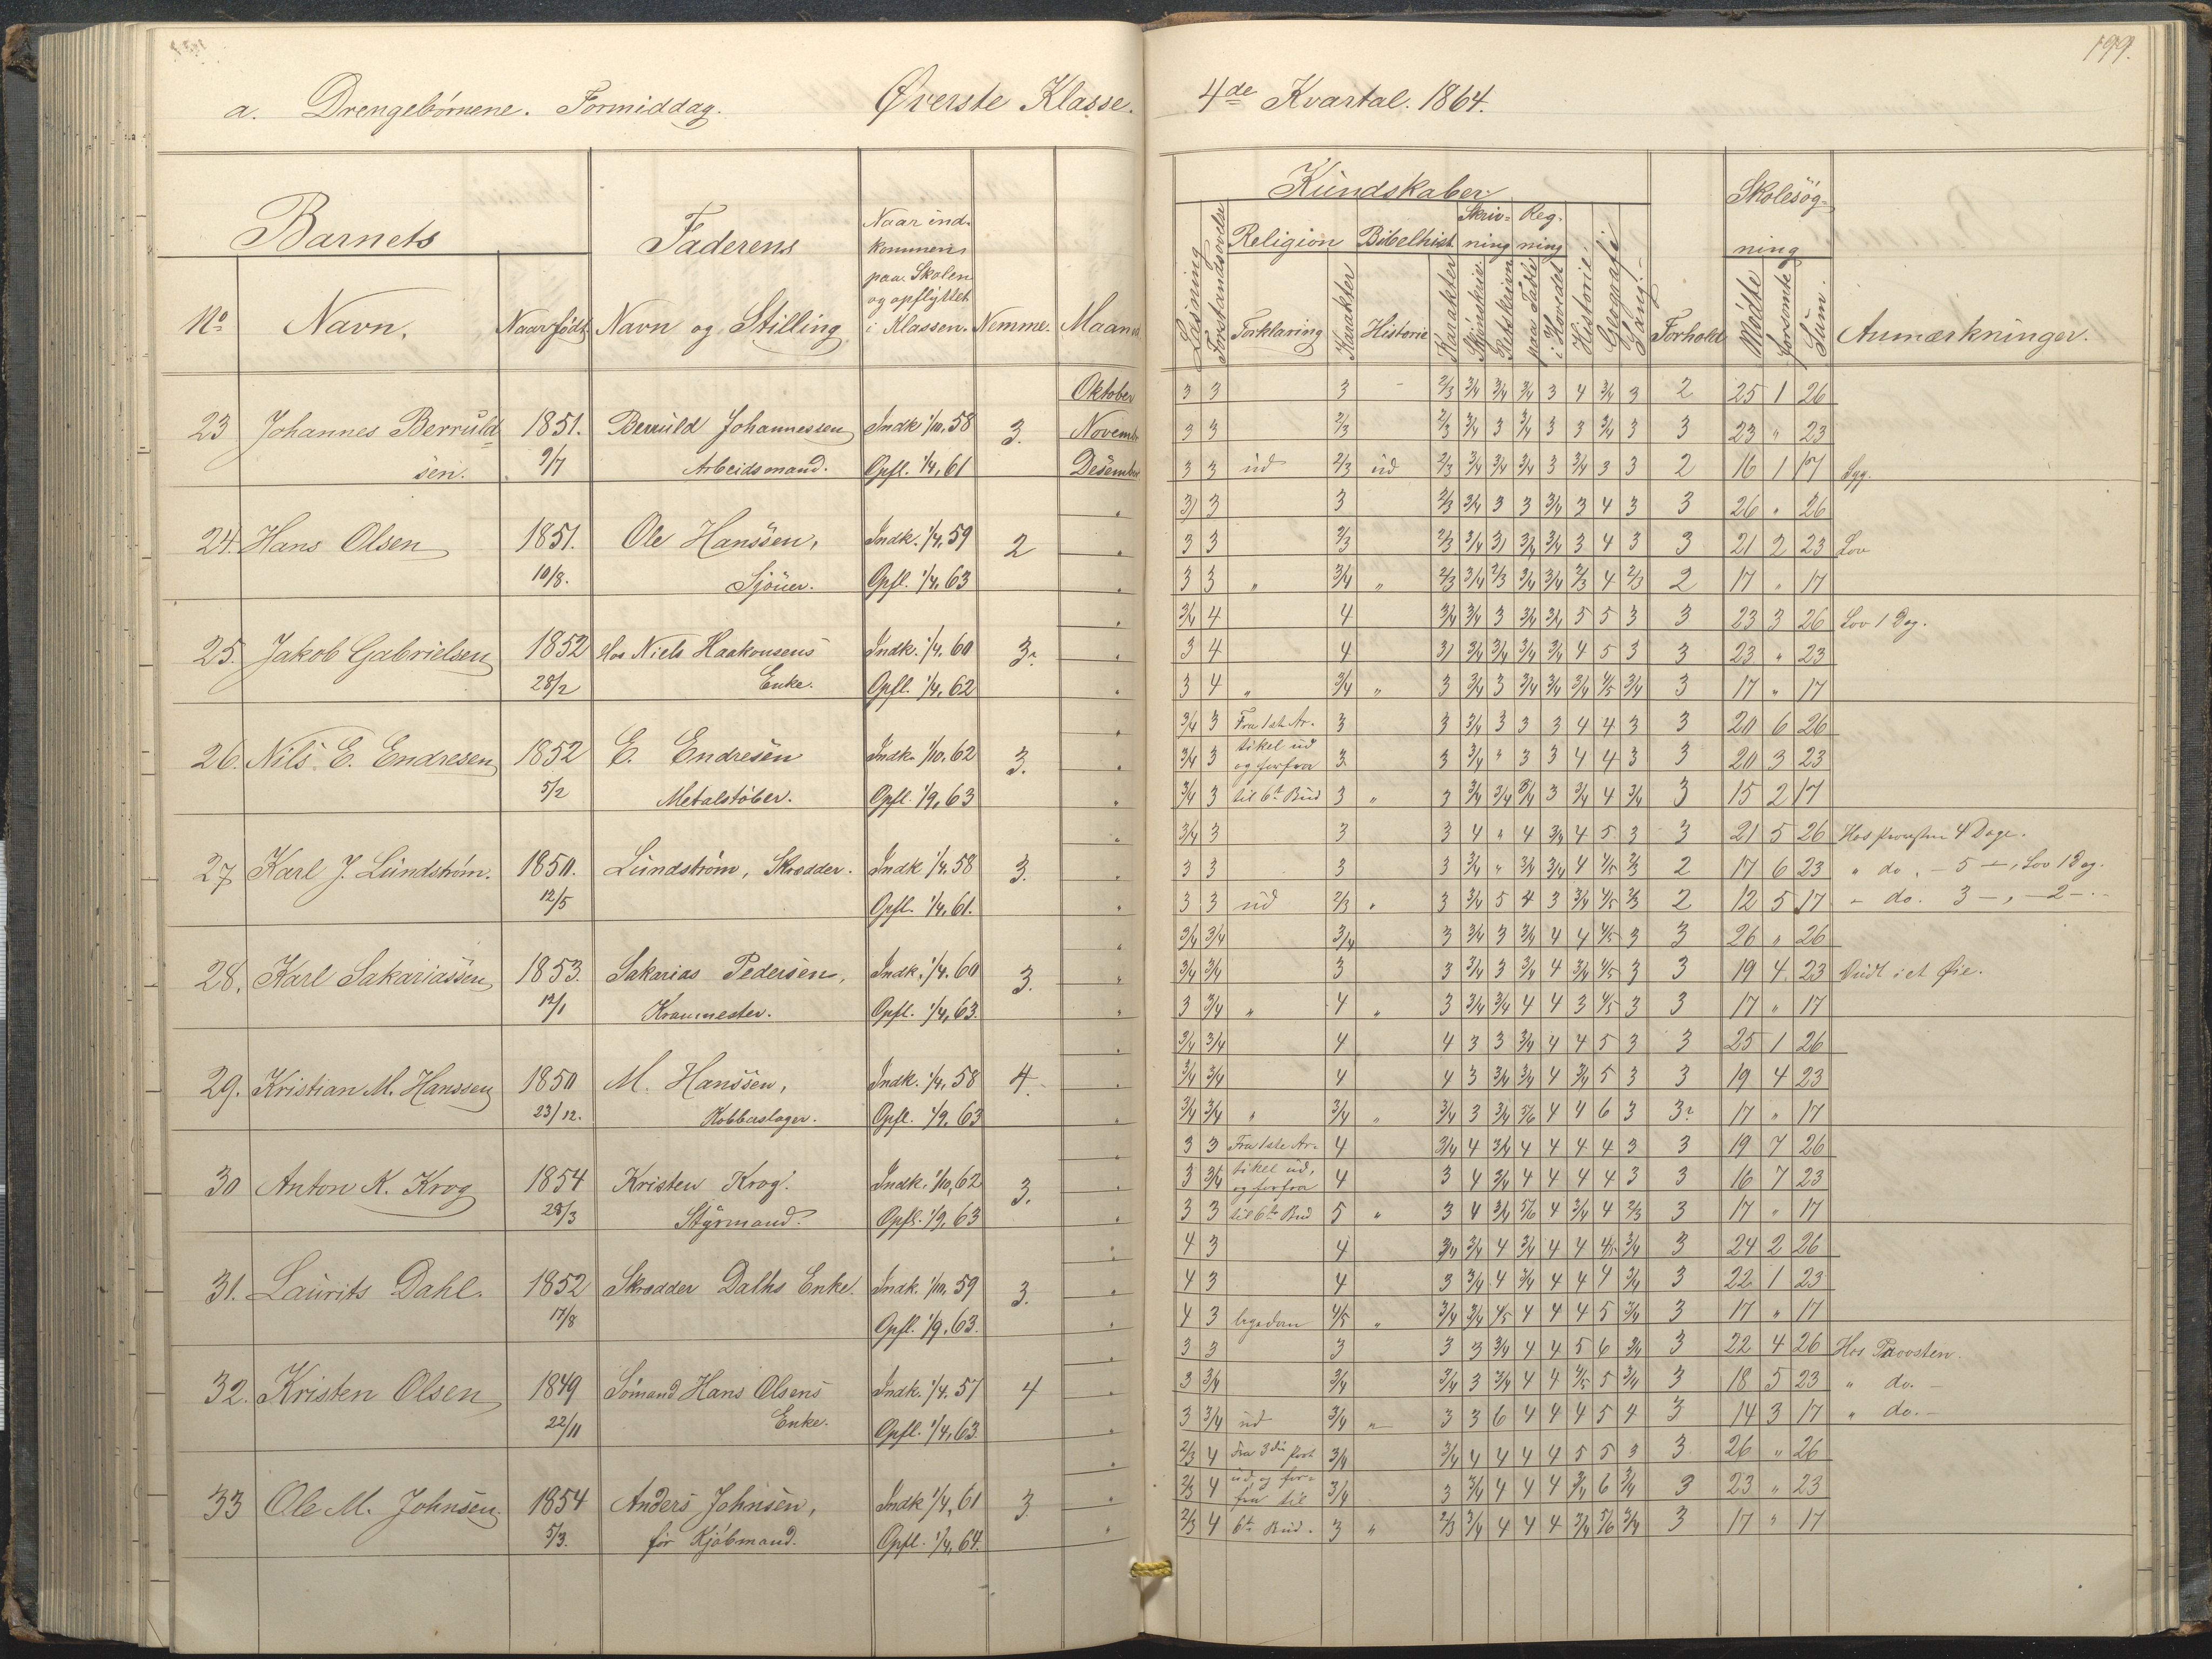 199.
a. Drengebørnene. Formiddag. Øverste Klasse. 4de Kvartal. 1864.
Barnets Faderens Naar ind-
kommen
paa Skolen
og opflyttet
i Klassen. Nemme. Maaned
No Navn. Naar født Navn og Stilling
Kundskaber Skolesøg-
ning
Læsning Forstandsøvelse Religion Bibelhist Skriv-
ning Reg.
ning Historie Geografi Sang. Forhold
Forklaring Karakter Historie Karakter Skjønskriv. Retskrivn paa Tavle i Hovedet Mødte forsømte Sum. Anmærkninger.
Oktober 3 3 3 - 2/3 3/4 3/4 3/4 3 4 3/4 3 2 25 1 26
23 Johannes Berruld 1851. Berruld Johannessen Indk 1/10, 58 3. Novemb 3 3 2/3 2/3 3/4 3 3/4 3 3 3/4 3 3 23 " 23
sen. 9/7 Arbeidsmand. Opfl. 1/4, 61 Desember 3 3 ud 2/3 ud 2/3 3/4 3/4 3/4 3 3/4 3 3 2 16 1 17 Syg.
3 3 3 2/3 3/4 3 3 3/4 3 4 3 3 26 " 26
24. Hans Olsen 1851. Ole Hanssen, Indk. 1/4, 59 2 " 3 3 2/3 2/3 3/4 3 3/4 3/4 3 4 3 3 21 2 23 Lov
10/8. Sjøuer. Opfl. 1/4, 63 " 3 3 " 3/4 " 2/3 3/4 2/3 3/4 3/4 2/3 4 2/3 2 17 " 17
3/4 4 4 3/4 3/4 3 3/4 3/4 5 5 3 3 23 3 26 Lov 1 Dag.
25. Jakob Gabrielsen 1852 Hos Niels Haakonsens Indk. 1/4, 60 3. " 3 4 4 3 3/4 3/4 3/4 3/4 4 5 3 3 23 " 23
28/2 Enke. Opfl. 1/4, 62 " 3 4 " 3/4 " 3 3/4 3 3/4 3/4 3/4 4/5 3/4 3 17 " 17
3/4 3 Fra 1ste Ar- 3 3 3/4 3 3 3 4 4 3 3 20 6 26
26. Nils E. Endresen 1852 E. Endresen Indk. 1/10, 62 3. " 3/4 3 tikel ud
og forfra 3 3 3/4 " 3 3 4 4 3 3 20 3 23
5/2 Metalstøber. Opfl. 1/9, 63 " 3/4 3 til 6te Bud 3 " 3 3/4 3/4 3/4 3 3/4 4 3/4 3 15 2 17
3/4 3 3 3 4 " 4 3/4 4 5 3 3 21 5 26 Hos Provsten 4 Dage.
27 Karl J. Lundstrøm. 1850. Lundstrøm, Skrædder. Indk 1/4, 58 3. " 3 3 3 3 3/4 " 3/4 3/4 4 4/5 2/3 2 17 6 23 " do. - 5 -, Lov 1 Dag.
12/5 Opfl. 1/4, 61. " 3 3 ud 2/3 " 3 3/4 5 4 3 3/4 4/5 2/3 2 12 5 17 - do. 3 -, - 2 -.
3/4 3/4 3/4 3 3/4 3 3/4 4 4 4/5 3 3 26 " 26
28. Karl Sakariassen 1853. Sakarias Pedersen, Indk. 1/4, 60 3. " 3/4 3/4 3 3 3/4 3 3/4 4 3/4 4/5 3 3 19 4 23 Ondt i et Øie.
12/1 Kranmester. Opfl. 1/4, 63. " 3 3/4 " 4 " 3 3/4 3/4 4 4 3 4/5 3 3 17 " 17
3/4 3/4 4 4 3 3 3/4 4 4 5 3 3 25 1 26
29. Kristian M. Hanssen 1850 M. Hanssen, Indk. 1/4, 58 4. " 3/4 3/4 4 4 3 3/4 3/4 4 3/4 5 3 3 19 4 23
23/12. Kobberslager. Opfl. 1/9, 63 " 3/4 3/4 " 3/4 " 3/4 3 3/4 5/6 4 4 6 3 3? 17 " 17
3 3 Fra 1ste Ar- 4 3/4 4 3/4 4 4 4 4 3 3 19 7 26
30 Anton K. Krog 1854 Kristen Krog. Indk. 1/10, 62 3. " 3 3/4 tikel ud,
og forfra 4 3 4 3/4 4 4 4 4 3 3 16 7 23
28/3 Styrmand. Opfl. 1/9, 63 " 3 3 til 6te Bud 5 " 3 4 3/4 5/6 4 3/4 4 2/3 3 17 " 17
4 3 4 3/4 3/4 4 3/4 4 4 4/5 3/4 3 24 2 26
31. Laurits Dahl. 1852 Skrædder Dalhs Enke. Indk. 1/10, 59 3. " 4 3 4 3 3/4 4 3/4 4 4 4 3/4 3 22 1 23
17/8 Opfl. 1/9, 63. " 4 3 4/5 " 3/4 3/4 4/5 4 4 4 5 3/4 3 17 " 17
3 3 3 3 3 3/4 4 4 5 6 3/4 3 22 4 26 Hos Provsten.
32. Kristen Olsen 1849 Sømand Hans Olsens Indk. 1/4, 57 4 " 3 3/4 3/4 3/4 3 3/4 4 4 4/5 5 3/4 3 18 5 23 " do. -
22/11 Enke. Opfl. 1/4, 63. " 3 3/4 ud 3/4 " 3 3 6 4 4 4 5 4 3 14 3 17 " do. -
2/3 4 Fra 3die Part 3/4 3/4 4 4 4 4 5 5 3 3 26 " 26
33 Ole M. Johnsen. 1854 Anders Johnsen, Indk 1/4, 61 3. " 2/3 4 ud, og for-
fra til 3/4 3 3/4 4 4 4 3/4 6 3/4 3 23 " 23
5/3. før Kjøbmand. Opfl. 1/4, 64. " 2/3 4 6te Bud. 3 " 2/3 3/4 4 4 4 3/4 5/6 3/4 3 17 " 17